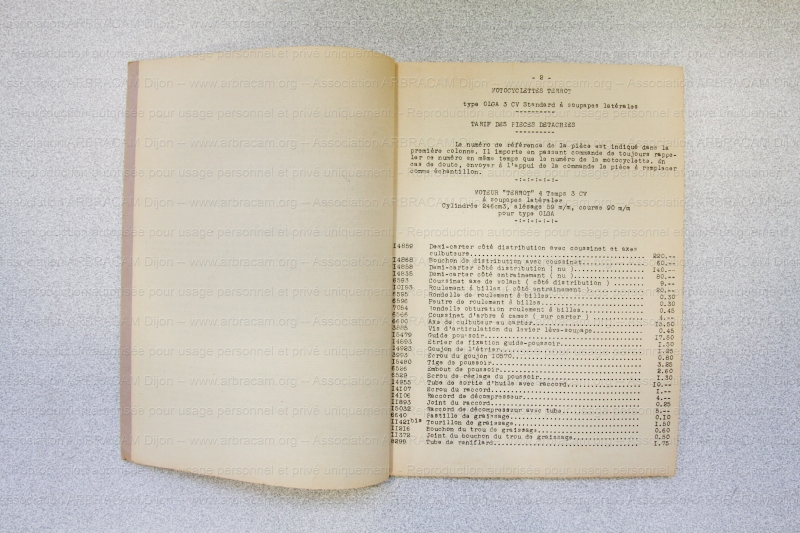 - 2 -
MOTOCYCLETTES TERROT
type OLSA 3 CV Standard à soupapes latérales
----------
TARIF DES PIECES DETACHEES
----------
Le numéro de référence de la pièce est indiqué dans la
première colonne. Il importe en passant commande de toujours rappe-
ler ce numéro en même temps que le numéro de la motocyclette. En
cas de doute, envoyer à l'appui de la commande la pièce à remplacer
comme échantillon.
-:-:-:-:-
MOTEUR "TERROT" 4 Temps 3 CV
à soupapes latérales
Cylindrée 246cm3, alésage 59 m/m, course 90 m/m
pour type OLSA
-:-:-:-:-
I4859 Demi-carter côté distribution avec coussinet et axes
culbuteurs 220.--
I4868 Bouchon de distribution avec coussinet 60.--
I4858 Demi-carter côté distribution ( nu ) I40.--
I4835 Demi-carter côté entrainement ( nu ) 80.--
6593 Coussinet axe de volant ( côté distribution ) 9.--
I0193 Roulement à billes ( côté entrainement ) 20.--
6595 Rondelle de roulement à billes 0.30
6596 Feutre de roulement à billes 0.30
7054 Rondelle obturation roulement à billes 0.45
6506 Coussinet d'arbre à cames ( sur carter ) 4.--
6600 Axe de culbuteur au carter I2.50
3885 Vis d'articulation du levier lève-soupape 0.45
I5479 Guide poussoir I7.50
I4893 Etrier de fixation guide-poussoir I.50
I4983 Goujon de l'étrier I.25
3993 Ecrou du goujon I0570 0.60
I5480 Tige de poussoir 3.25
6526 Embout de poussoir 2.60
6529 Ecrou de réglage du poussoir I.30
I4955 Tube de sortie d'huile avec raccord I0.--
I4I07 Ecrou du raccord I.--
I4I06 Raccord de décompresseur 4.--
II893 Joint du raccord 0.25
I5032 Raccord de décompresseur avec tube 5.--
6640 Pastille de graissage 0.I0
II42I bis Tourillon de graissage I.50
II2I6 Bouchon du trou de graissage 0.60
II372 Joint du bouchon du trou de graissage 0.30
8298 Tube de reniflard I.75